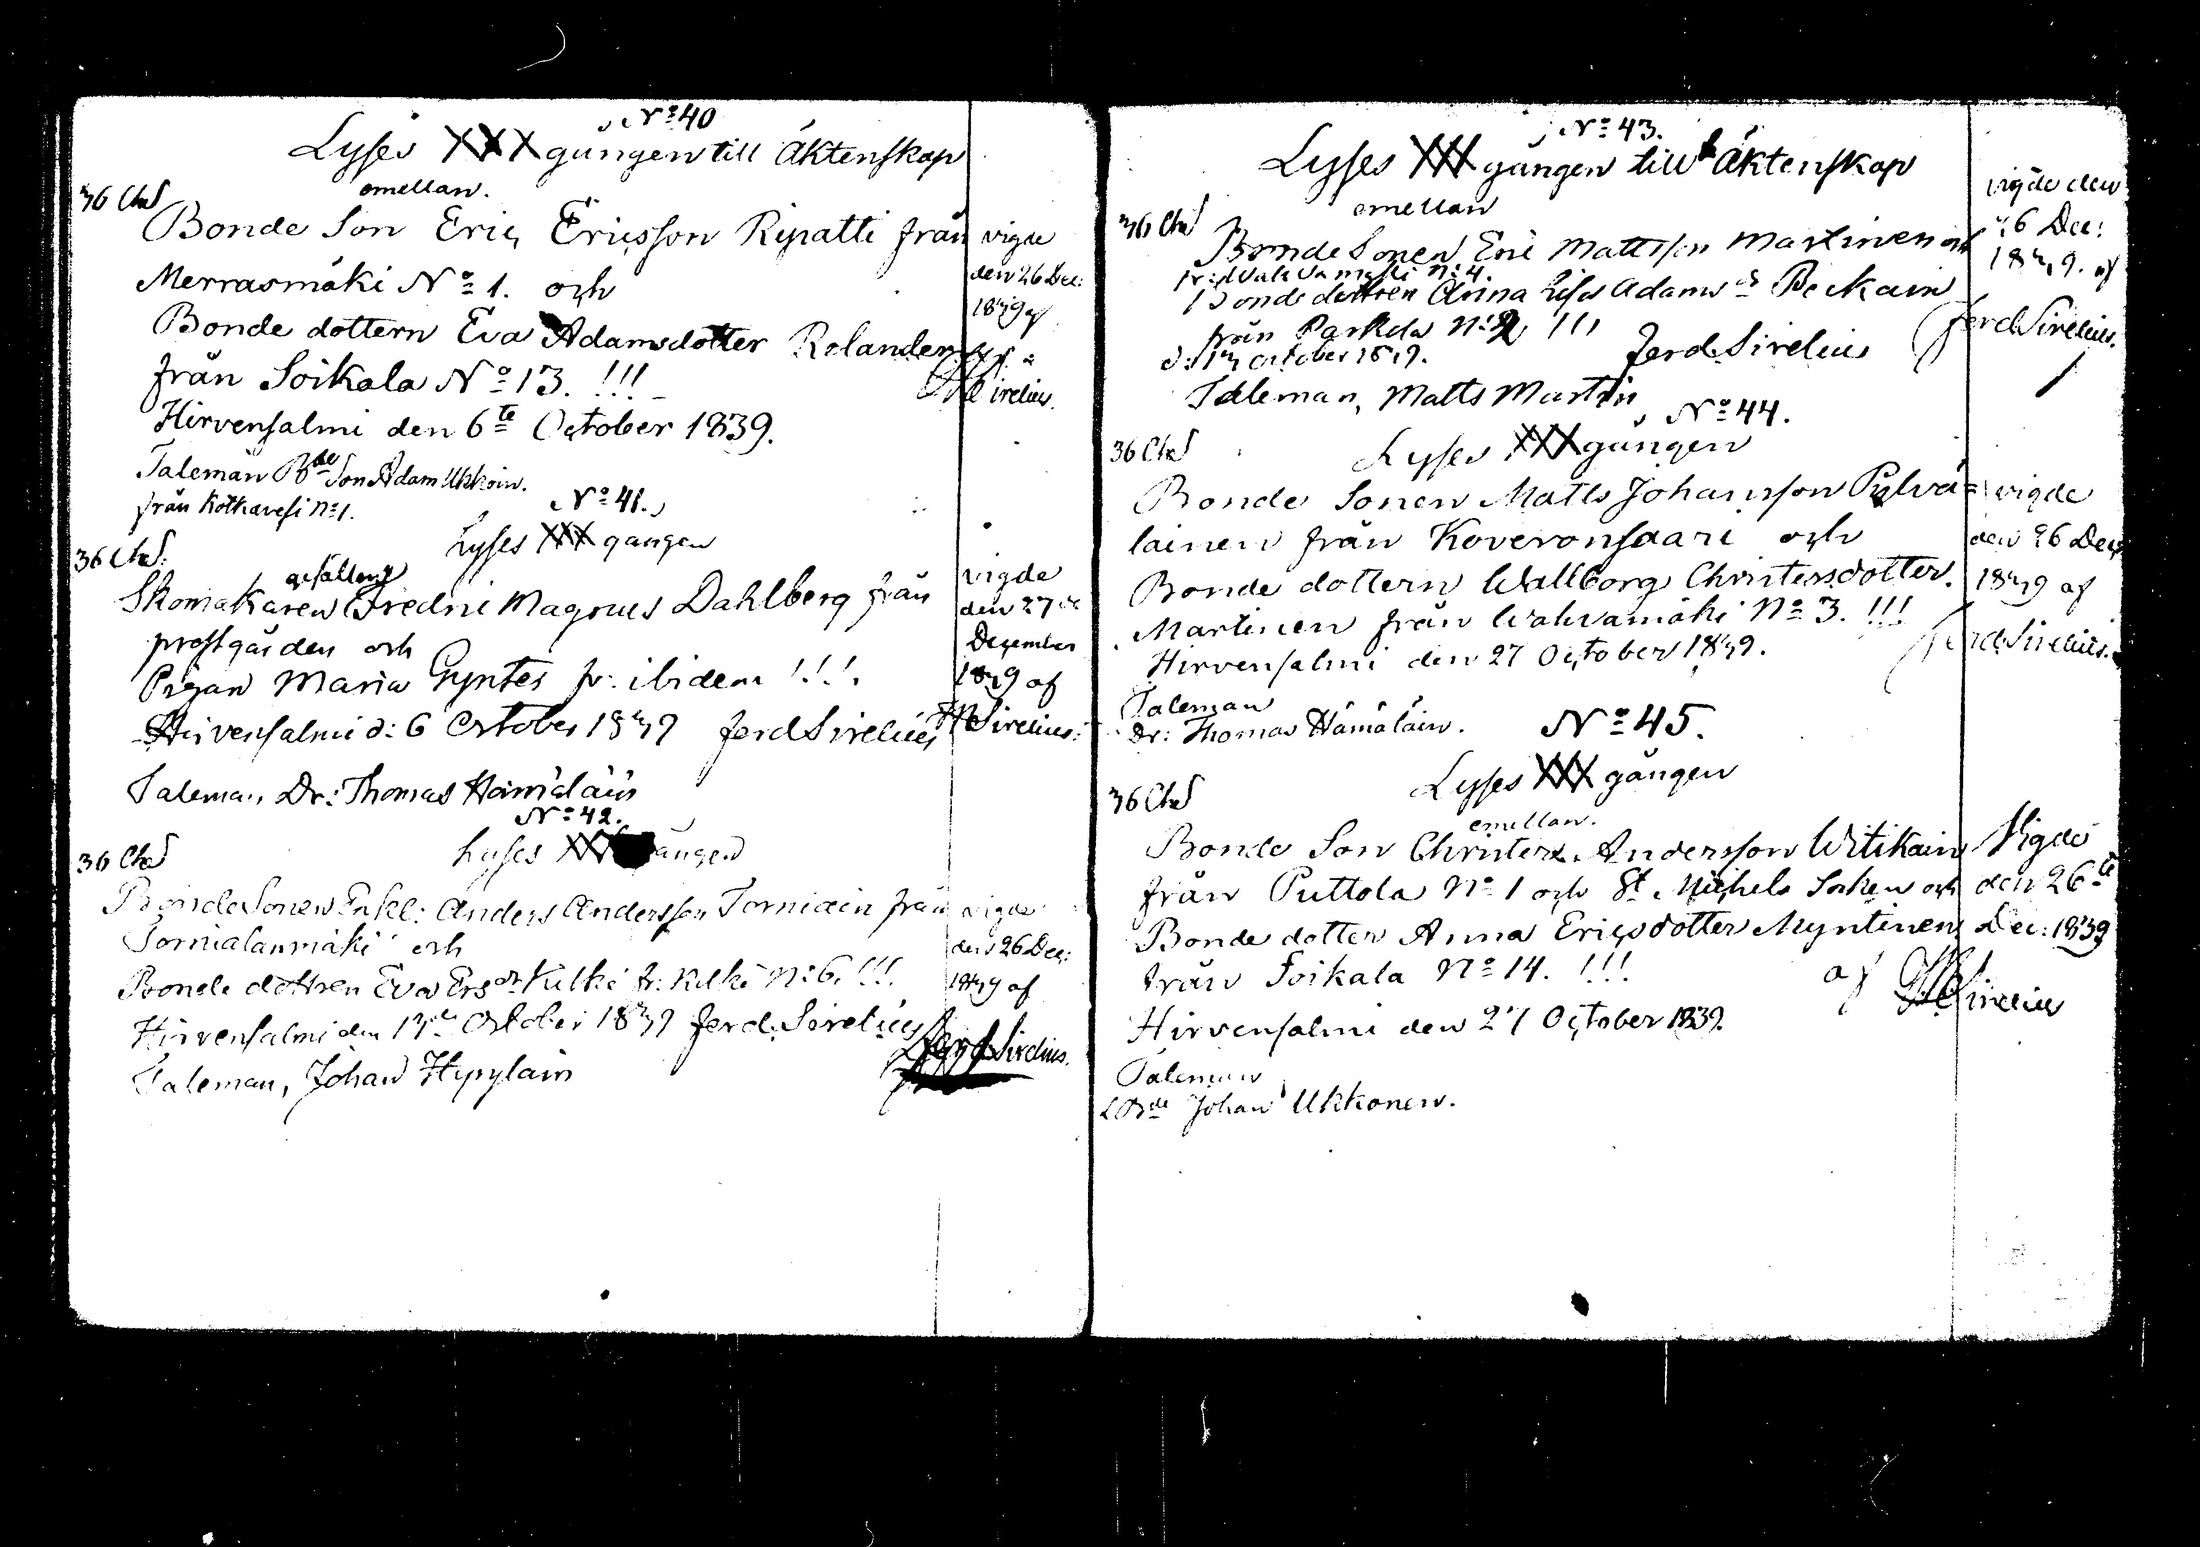 N:o 40
Lyses XXX gången till Äktenskap
emellan.
36 Ch:
Bonde Son Eric Ericsson Ripatti från
Merrasmäki N:o 1. och
Bonde dottern Eva Adamsdotter Rolander
från Soikala N:o 13. !!!
Hirvensalmi den 6te October 1839.
Taleman Bde Son Adam Ukkoin.
från Kotkavesi N:o 1.
vigde
den 26 Dec:
1839 af
Sirelius.
N:o 41.
Lyses XXX gången
36 Ch:
afsålleny
Skomakaren Fredric Magnus Dahlberg från
prostgården och
Pigan Maria Gyntes fr: ibidem !!!
Hirvensalmi d: 6 October 1839 Ferd Sirelius
Taleman, Dr: Thomas Hämäläin
vigde
den 27de
December
1839 af
Sirelius:
N:o 42.
Lyses XXX gången
36 Ch:
Bonde Sonen Enkl: Anders Andersson Torniain från
Tornialanmäki och
Bonde dottren Eva Ersdr Kilki fr: Kilki N:o 6. !!!
Hirvensalmi den 13de October 1839 Ferd. Sirelius
Taleman, Johan Hypyläin
vigde
den 26 Dec:
1839 af
Ferd Sirelius.
N:o 43.
Lyses XXX gången till Äktenskap
emellan
36 Ch:
Bonde Sonen Eric Mattsson Martinen och
fr: Vahvamäki N:o 4.
Bonde dottren Anna Lisa Adamsdr Beckain
från Parkila N:o 2 !!!
d: 13 October 1839. Ferd. Sirelius
Taleman, Matts Martin
vigde den
26 Dec:
1839. af
Ferd Sirelius.
N:o 44.
36 Ch:
Lyses XXX gången
Bonde Sonen Matts Johansson Pulvä=
lainen från Koveronsaari och
Bonde dottern Wallborg Christersdotter
Martinen från Wahvamäki N:o 3. !!!
Hirvensalmi den 27 October 1839.
Taleman
Dr: Thomas Hämäläin.
vigde
den 26 Dec
1839 af
Ferd. Sirelius.
N:o 45.
Lyses XXX gången
36 Ch:
emellan.
Bonde Son Christer Andersson Witikain
från Puttola N:o 1 och St Michels Socken och
Bonde dotter Anna Ericsdotter Myntinen
från Soikala N:o 14. !!!
Hirvensalmi den 27 October 1839.
Taleman
Bde Johan Ukkonen.
Vigde
den 26te
Dec: 1839
af Sirelius